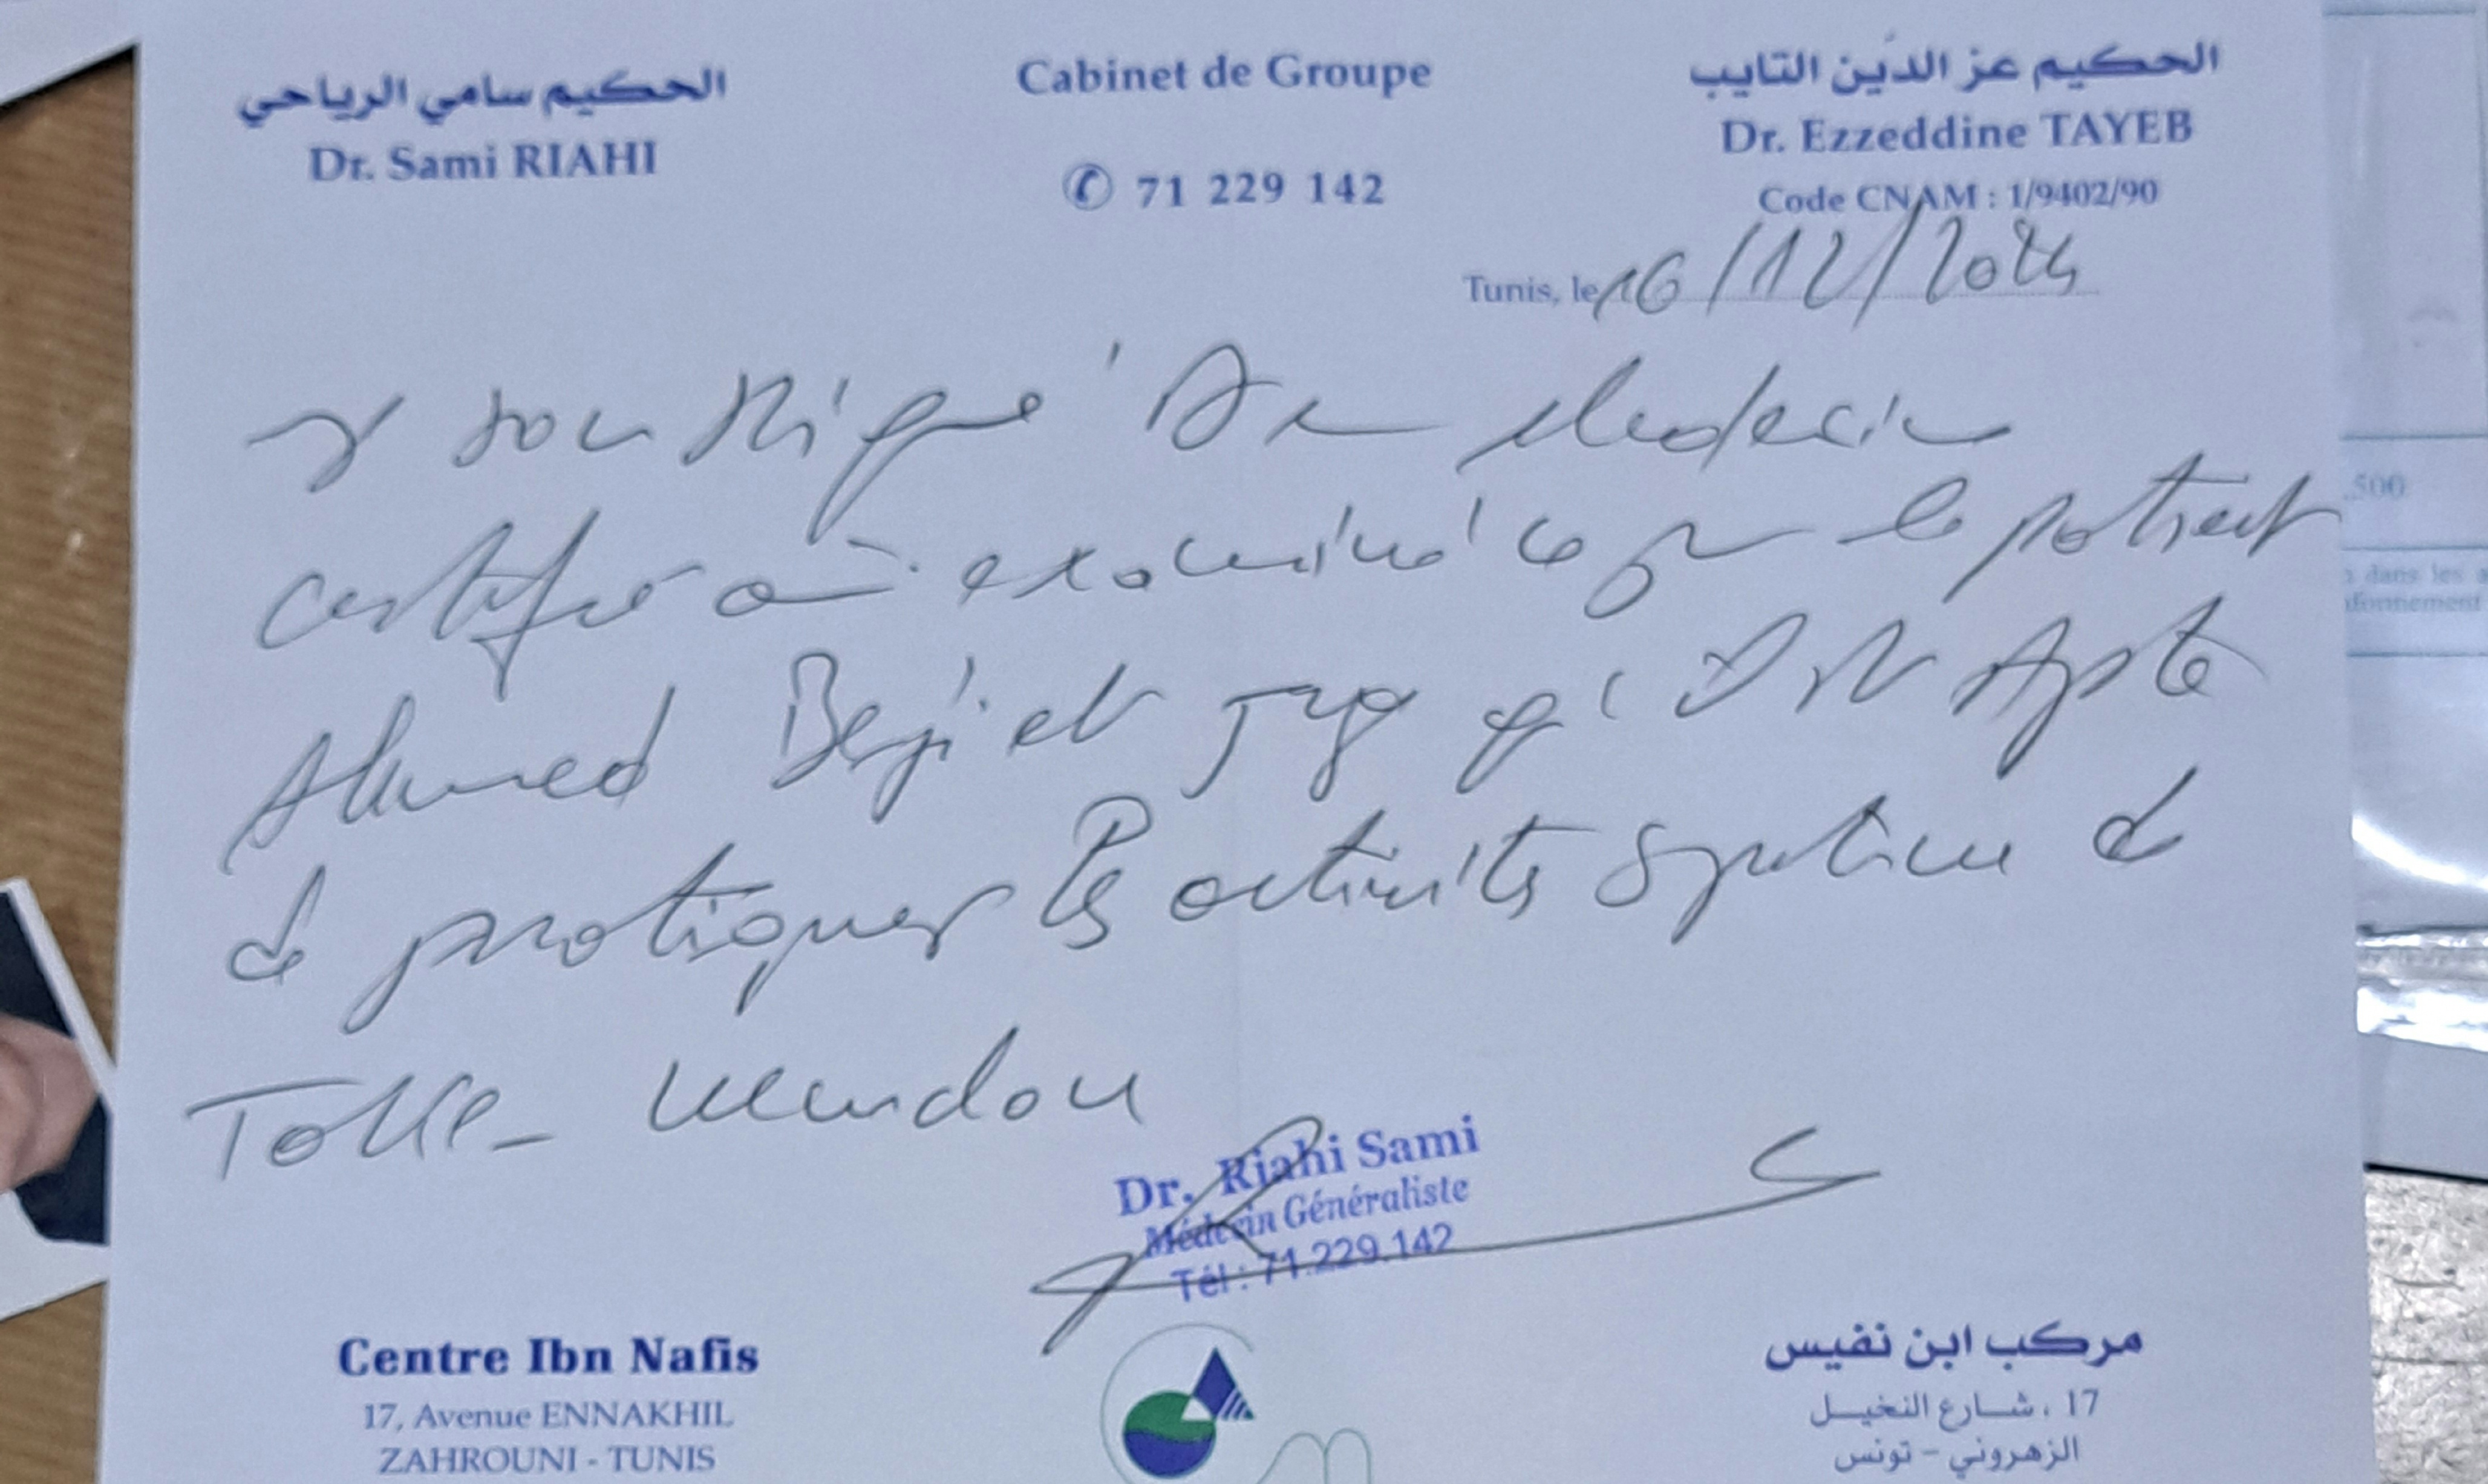 الحكيم سامي الرياحي
Dr. Sami RIAHI
Cabinet de Groupe
✆ 71 229 142
الحكيم عز الدين التايب
Dr. Ezzeddine TAYEB
Code CNAM : 1/9402/90
Tunis, le 16/12/2024
Je soussigné Dr Medecin
certifie avoir examiné ce jour le patient
Ahmed Beji et juge qu'il est Apte
de pratiquer les activités Sportives de
Dr. Riahi Sami
Médecin Généraliste
Tél : 71.229.142
Centre Ibn Nafis
17, Avenue ENNAKHIL
ZAHROUNI - TUNIS
مركب ابن نفيس
17 ، شارع النخيل
الزهروني - تونس
.500
dans les